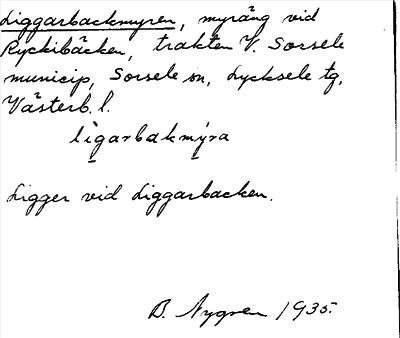 Liggarbackmyren, myräng vid
Ryckibäcken, trakten V. Sorsele
municip, Sorsele sn, Lycksele tg,
Västerb. l.
ligarbakmýra
Ligger vid Liggarbacken.
B. Nygren 1935.